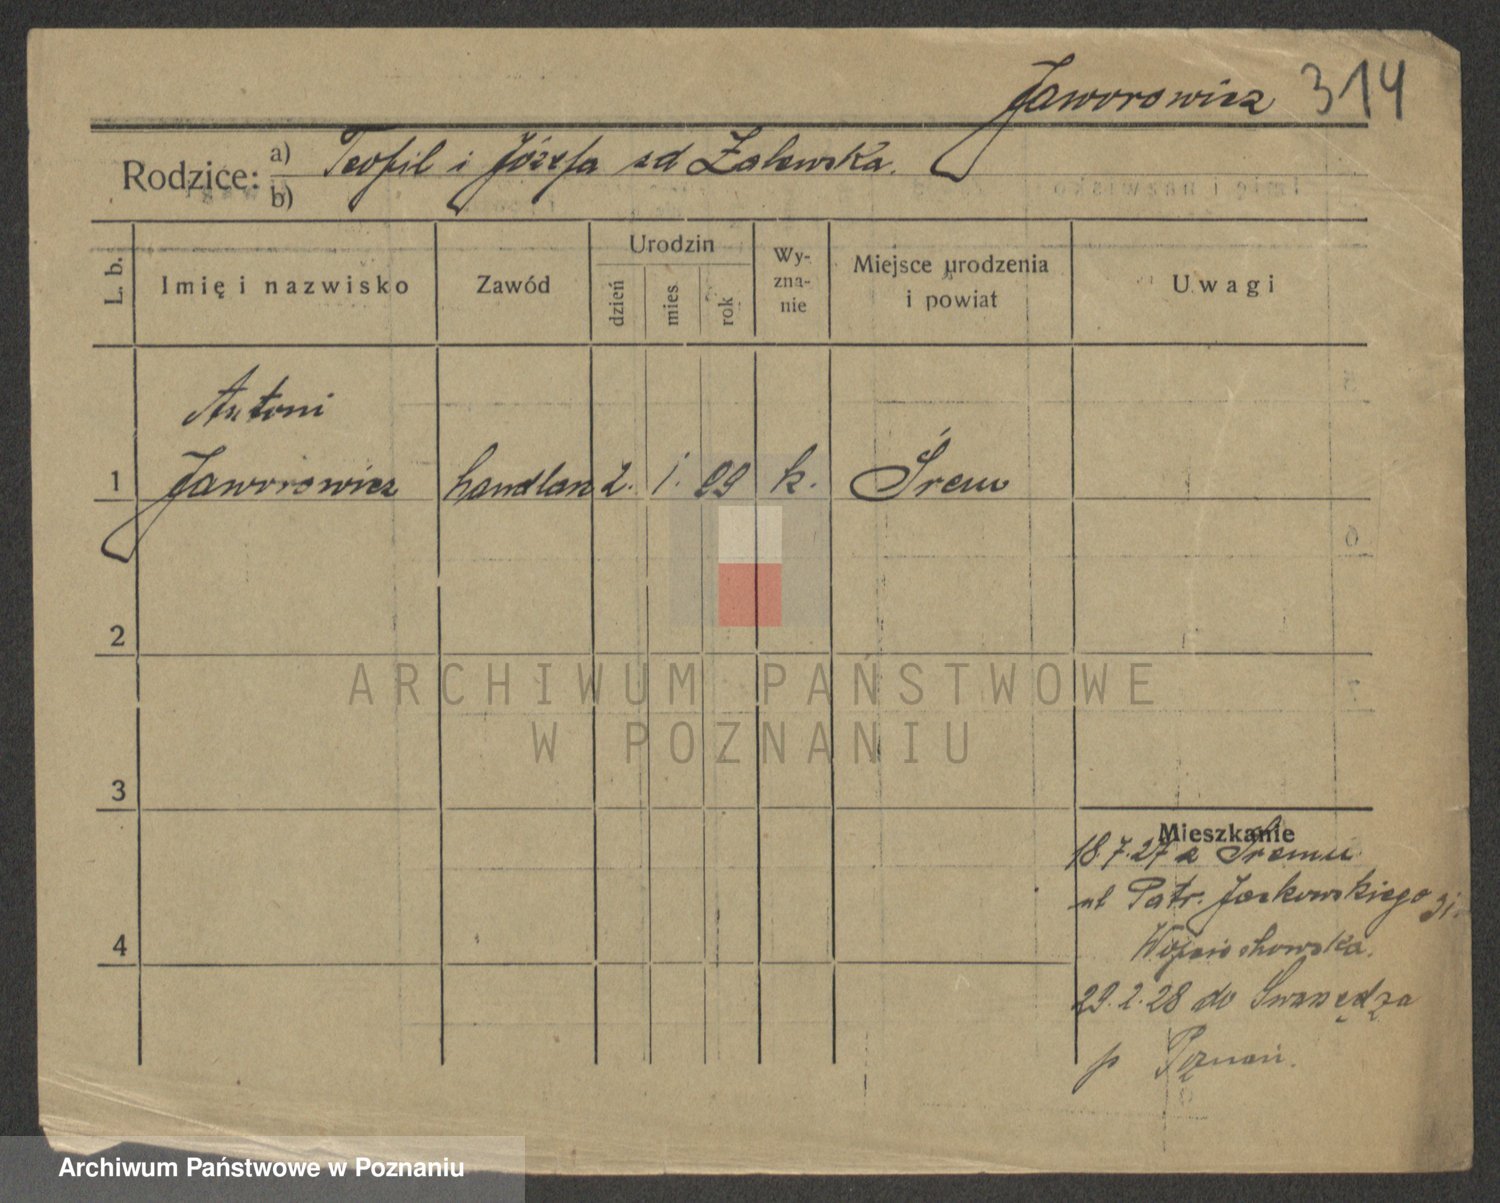 Jaworowicz 314
Rodzice: a) Teofil i Józefa zd Zalewska.
b)
L. b.
Imię i nazwisko
Zawód
Urodzin
dzień
mies
rok
Wy-
zna-
nie
Miejsce urodzenia
i powiat
Uwagi
Antoni
1 Jaworowicz handlarz 2. 1. 99 k. Śrem
2
3
4
Mieszkanie
18.7.27 z Śremu
ul Patr. Jackowskiego 31
Wojciechowska.
29.2.28 do Swarzędza
p Poznań.
ARCHIWUM PAŃSTWOWE
W POZNANIU
Archiwum Państwowe w Poznaniu